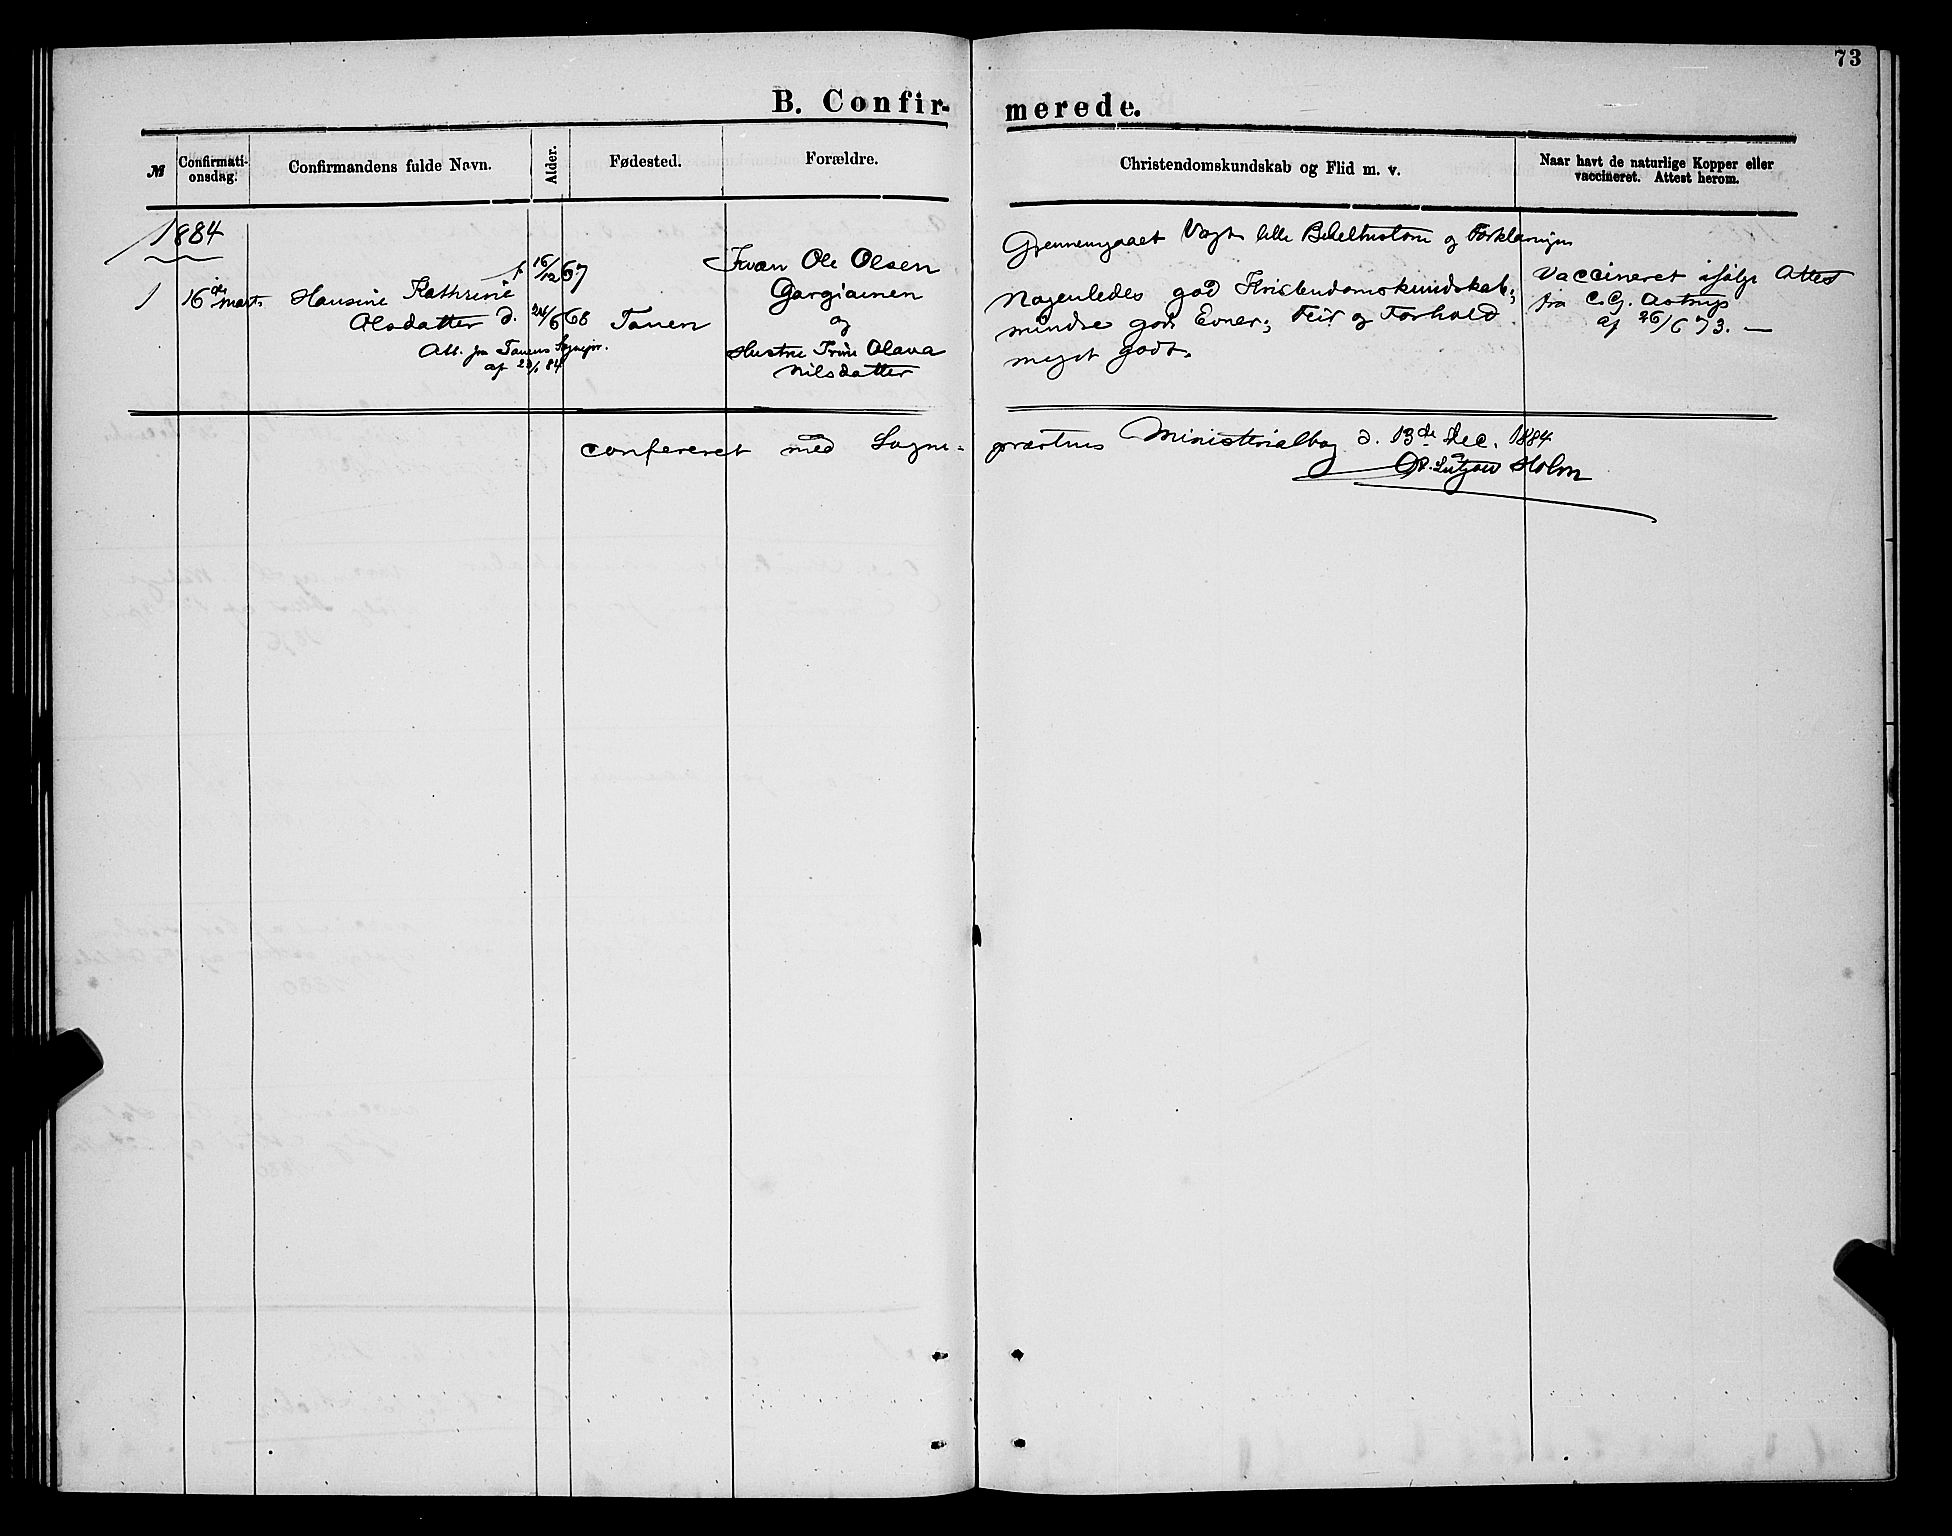 73
B. Confirmerede.
№
Confirmati-
onsdag.
Confirmandens fulde Navn.
Alder.
Fødested.
Forældre.
Christendomskundskab og Flid m. v.
Naar havt de naturlige Kopper eller
vaccineret. Attest herom.
1884
1
16de Marts
Hansine Kathrine
Olsdatter
Att. fra Tanens Sognepr.
af 84
f. 16/12 67
d. 24/6 68
Tanen
Kvæn Ole Olsen
Gargiainen
og
Hustru Trine Olava
Nilsdatter
Gjennemgaaet Vogts lille Bibelhistorie og Forklaringen
Nogenledes god Kristendomskundskab;
mindre gode Evner; Flid og Forhold
meget godt.
Vaccineret ifølge Attest
fra C. G. Astrup
af 26/6 73. —
confereret med Sogne-
præstens Ministerialbog d. 13de Dec. 1884
Lützow Holm